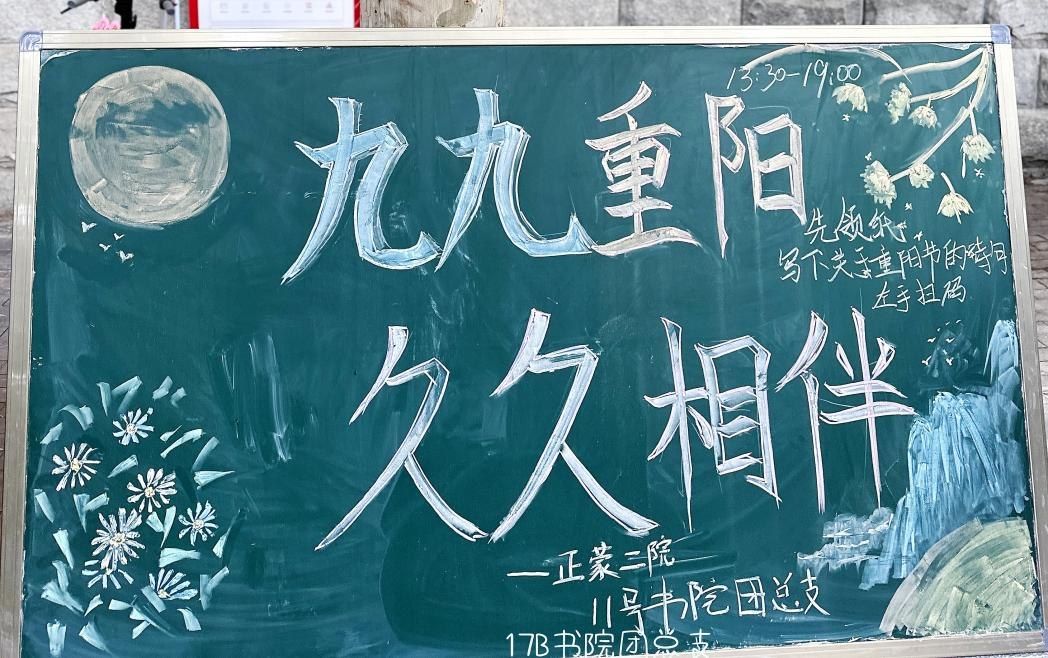 13:30-19:00
九九重阳
先领纸
写下关于重阳节的诗句
左手扫码
久久相伴
—正蒙二院
11号书院团总支
17B书院团总支